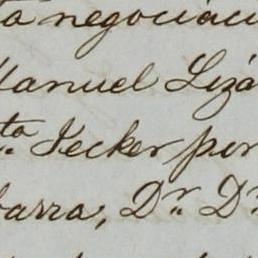 ta negociaci
Manuel Lizá
ta Jecker por
barra, Dr. Dn